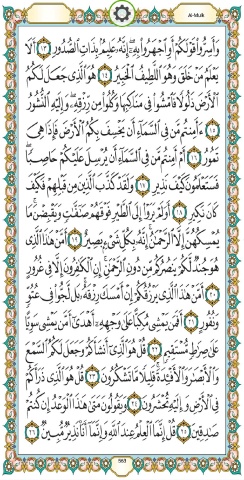 Al-Mulk
وَأَسِرُّوا۟ قَوْلَكُمْ أَوِ ٱجْهَرُوا۟ بِهِۦٓ ۖ إِنَّهُۥ عَلِيمٌۢ بِذَاتِ ٱلصُّدُورِ ١٣ أَلَا
يَعْلَمُ مَنْ خَلَقَ وَهُوَ ٱللَّطِيفُ ٱلْخَبِيرُ ١٤ هُوَ ٱلَّذِى جَعَلَ لَكُمُ
ٱلْأَرْضَ ذَلُولًا فَٱمْشُوا۟ فِى مَنَاكِبِهَا وَكُلُوا۟ مِن رِّزْقِهِۦ ۖ وَإِلَيْهِ ٱلنُّشُورُ
١٥ ءَأَمِنتُم مَّن فِى ٱلسَّمَآءِ أَن يَخْسِفَ بِكُمُ ٱلْأَرْضَ فَإِذَا هِىَ
تَمُورُ ١٦ أَمْ أَمِنتُم مَّن فِى ٱلسَّمَآءِ أَن يُرْسِلَ عَلَيْكُمْ حَاصِبًا ۖ
فَسَتَعْلَمُونَ كَيْفَ نَذِيرِ ١٧ وَلَقَدْ كَذَّبَ ٱلَّذِينَ مِن قَبْلِهِمْ فَكَيْفَ
كَانَ نَكِيرِ ١٨ أَوَلَمْ يَرَوْا۟ إِلَى ٱلطَّيْرِ فَوْقَهُمْ صَٰٓفَّٰتٍ وَيَقْبِضْنَ ۚ مَا
يُمْسِكُهُنَّ إِلَّا ٱلرَّحْمَٰنُ ۚ إِنَّهُۥ بِكُلِّ شَىْءٍۭ بَصِيرٌ ١٩ أَمَّنْ هَٰذَا ٱلَّذِى
هُوَ جُندٌ لَّكُمْ يَنصُرُكُم مِّن دُونِ ٱلرَّحْمَٰنِ ۚ إِنِ ٱلْكَٰفِرُونَ إِلَّا فِى غُرُورٍ
٢٠ أَمَّنْ هَٰذَا ٱلَّذِى يَرْزُقُكُمْ إِنْ أَمْسَكَ رِزْقَهُۥ ۚ بَل لَّجُّوا۟ فِى عُتُوٍّ
وَنُفُورٍ ٢١ أَفَمَن يَمْشِى مُكِبًّا عَلَىٰ وَجْهِهِۦٓ أَهْدَىٰٓ أَمَّن يَمْشِى سَوِيًّا
عَلَىٰ صِرَٰطٍ مُّسْتَقِيمٍ ٢٢ قُلْ هُوَ ٱلَّذِىٓ أَنشَأَكُمْ وَجَعَلَ لَكُمُ ٱلسَّمْعَ
وَٱلْأَبْصَٰرَ وَٱلْأَفْـِٔدَةَ ۖ قَلِيلًا مَّا تَشْكُرُونَ ٢٣ قُلْ هُوَ ٱلَّذِى ذَرَأَكُمْ
فِى ٱلْأَرْضِ وَإِلَيْهِ تُحْشَرُونَ ٢٤ وَيَقُولُونَ مَتَىٰ هَٰذَا ٱلْوَعْدُ إِن كُنتُمْ
صَٰدِقِينَ ٢٥ قُلْ إِنَّمَا ٱلْعِلْمُ عِندَ ٱللَّهِ وَإِنَّمَآ أَنَا۠ نَذِيرٌ مُّبِينٌ ٢٦
563